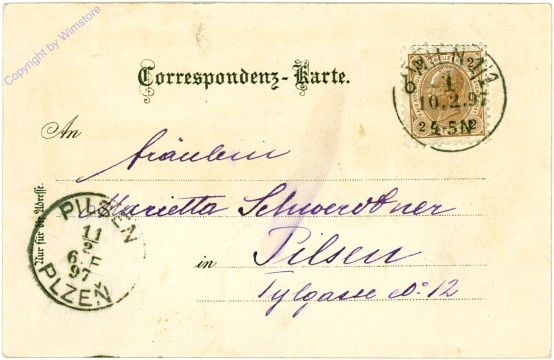 Copyright by Wimstore
Correspondenz-Karte.
1
10.2.97
2 4-5N 2
An
Fräulein
Marietta Schwerdtner
in Pilsen
Tylgasse No 12
Nur für die Adresse.
PILSEN
11
2
6.F
97
PLZEŇ